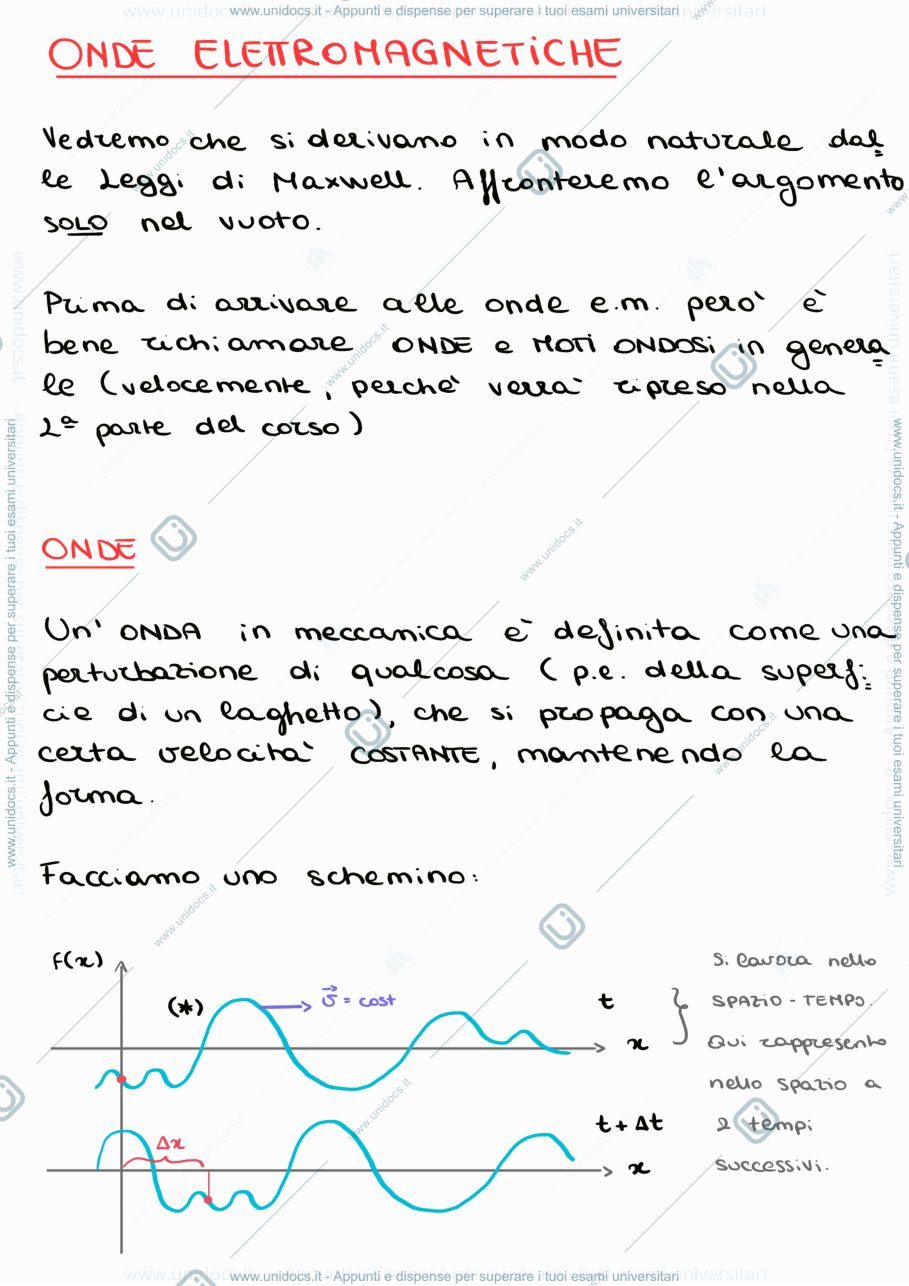 www.unidocs.it - Appunti e dispense per superare i tuoi esami universitari
ONDE ELETTROMAGNETICHE
Vedremo che si derivano in modo naturale dal
le Leggi di Maxwell. Affronteremo l'argomento
SOLO nel vuoto.
Prima di arrivare alle onde e.m. però è
bene richiamare ONDE e MOTI ONDOSI in genera
le (velocemente, perchè verrà ripreso nella
2ª parte del corso)
ONDE
Un' ONDA in meccanica è definita come una
perturbazione di qualcosa (p.e. della superfi
cie di un laghetto), che si propaga con una
certa velocità COSTANTE, mantenendo la
forma.
Facciamo uno schemino:
f(x)
(*)
v⃗ = cost
t
x
Si lavora nello
SPAZIO-TEMPO.
Qui rappresento
nello spazio a
2 tempi
successivi.
Δx
t + Δt
x
www.unidocs.it - Appunti e dispense per superare i tuoi esami universitari
www.unidocs.it - Appunti e dispense per superare i tuoi esami universitari
www.unidocs.it - Appunti e dispense per superare i tuoi esami universitari
www.unidocs.it
www.unidocs.it
www.unidocs.it
www.unidocs.it
www.unidocs.it
www.unidocs.it